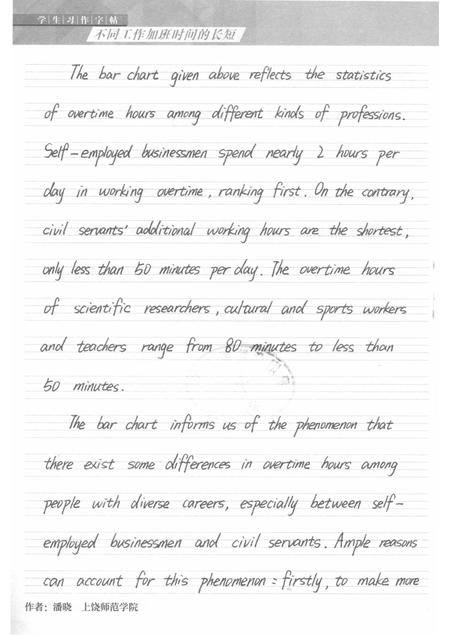 学生习作字帖
不同工作加班时间的长短
The bar chart given above reflects the statistics
of overtime hours among different kinds of professions.
Self-employed businessmen spend nearly 2 hours per
day in working overtime, ranking first. On the contrary,
civil servants' additional working hours are the shortest,
only less than 50 minutes per day. The overtime hours
of scientific researchers, cultural and sports workers
and teachers range from 80 minutes to less than
50 minutes.
The bar chart informs us of the phenomenon that
there exist some differences in overtime hours among
people with diverse careers, especially between self-
employed businessmen and civil servants. Ample reasons
can account for this phenomenon: firstly, to make more
作者: 潘晓 上饶师范学院